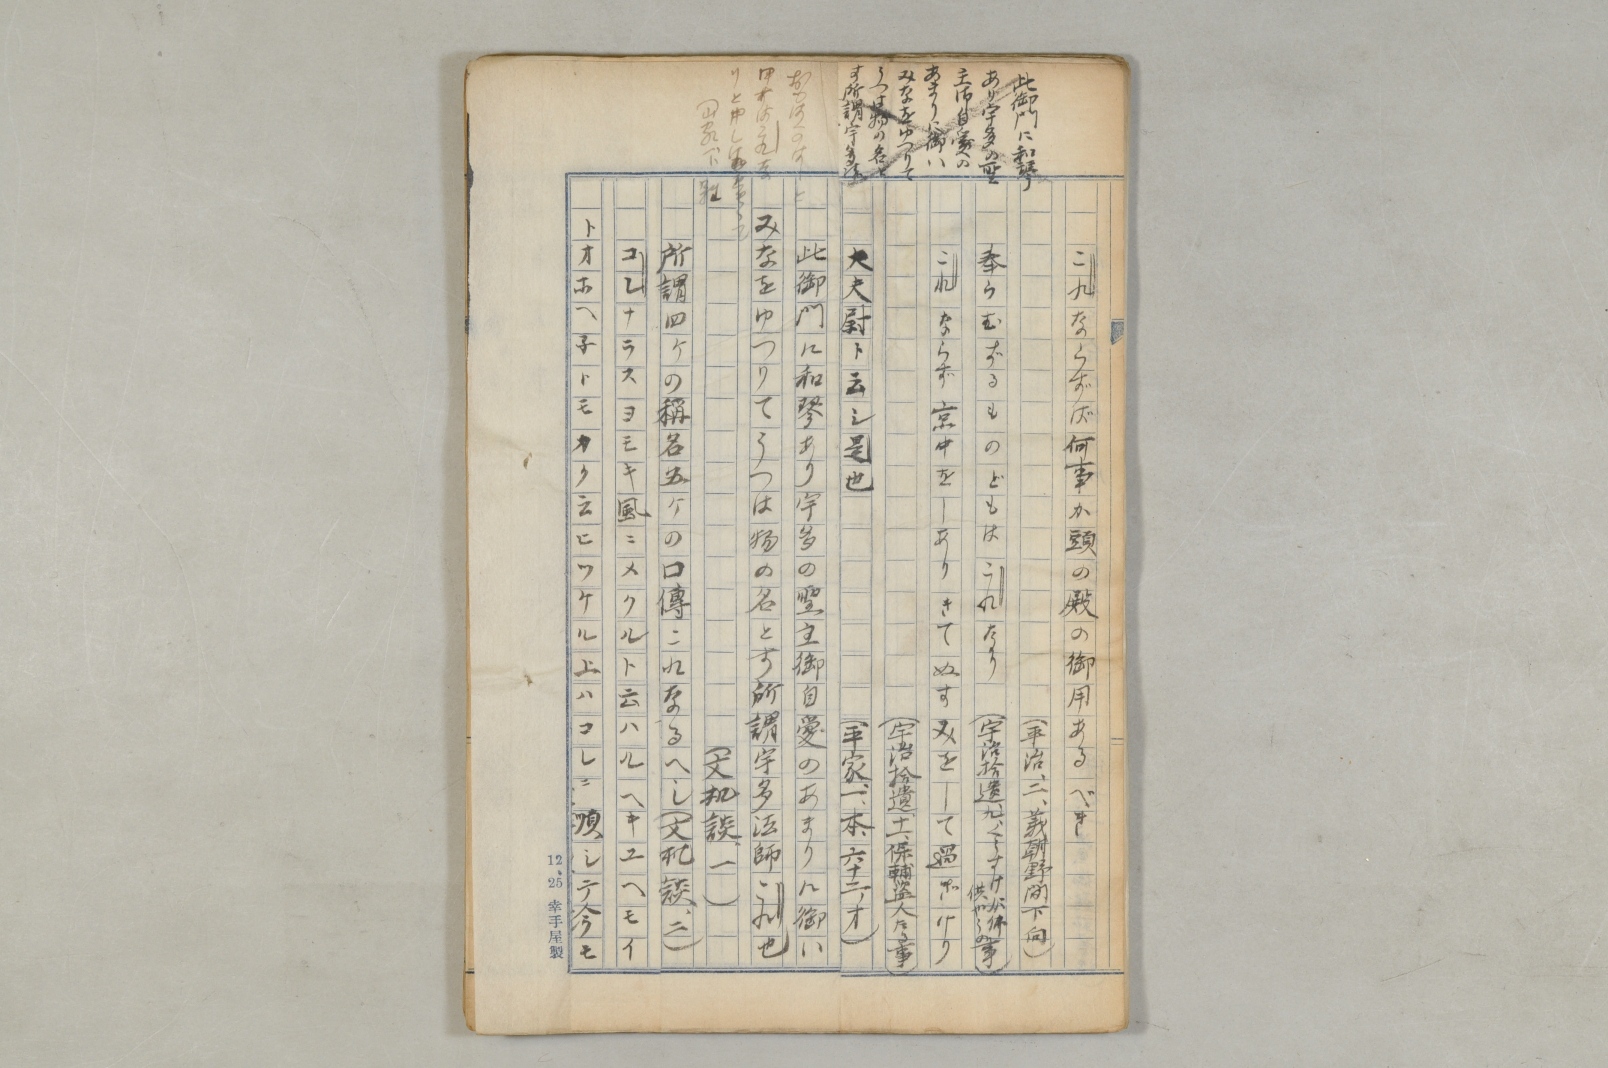 此御門に和琴
あり宇多の聖
主御自愛の
あまりに御い
みなをゆつりて
うつは物の名と
す所謂宇多法
これならずば何事か頭の殿の御用あるべき
(平治、二、義朝野間下向)
奉らむずるものどもはこれなり
(宇治拾遺、九、くうすけが佛供やうの事)
これならず京中をしありきてぬすみをして過ぎけり
(宇治拾遺、十一、保輔盗人たる事)
大夫尉ト云シ是也
(平家、一、本、六十二、オ)
此御門に和琴あり宇多の聖主御自愛のあまりに御い
みなをゆつりてうつは物の名とす所謂宇多法師これ也
(文机談、一)
所謂四ケの稱名五ケの口傳これなるへし(文机談、二)
コレナラスヨモキ風ニメクルト云ハルヘキユヘモイ
トオホヘ子トモカク云ヒツケル上ハコレニ順シテ今モ
12、25 幸手屋製